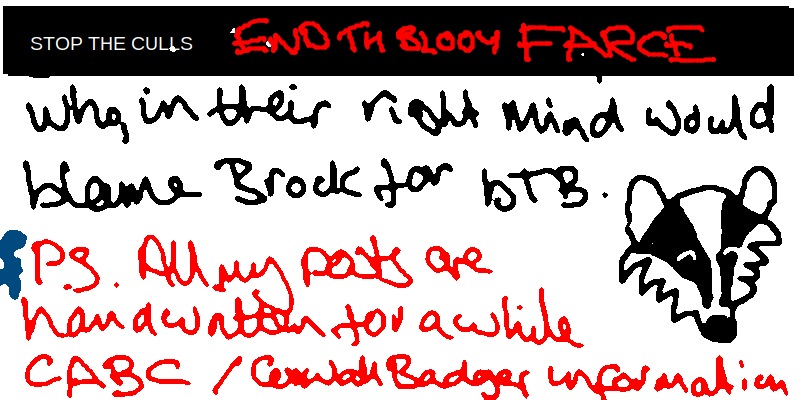 STOP THE CULLS END TH BLOOY FARCE
Who, in their right mind would
blame Brock for bTB.
P.S. All my posts are
handwritten for a while
CABC / Cornwall Badger information